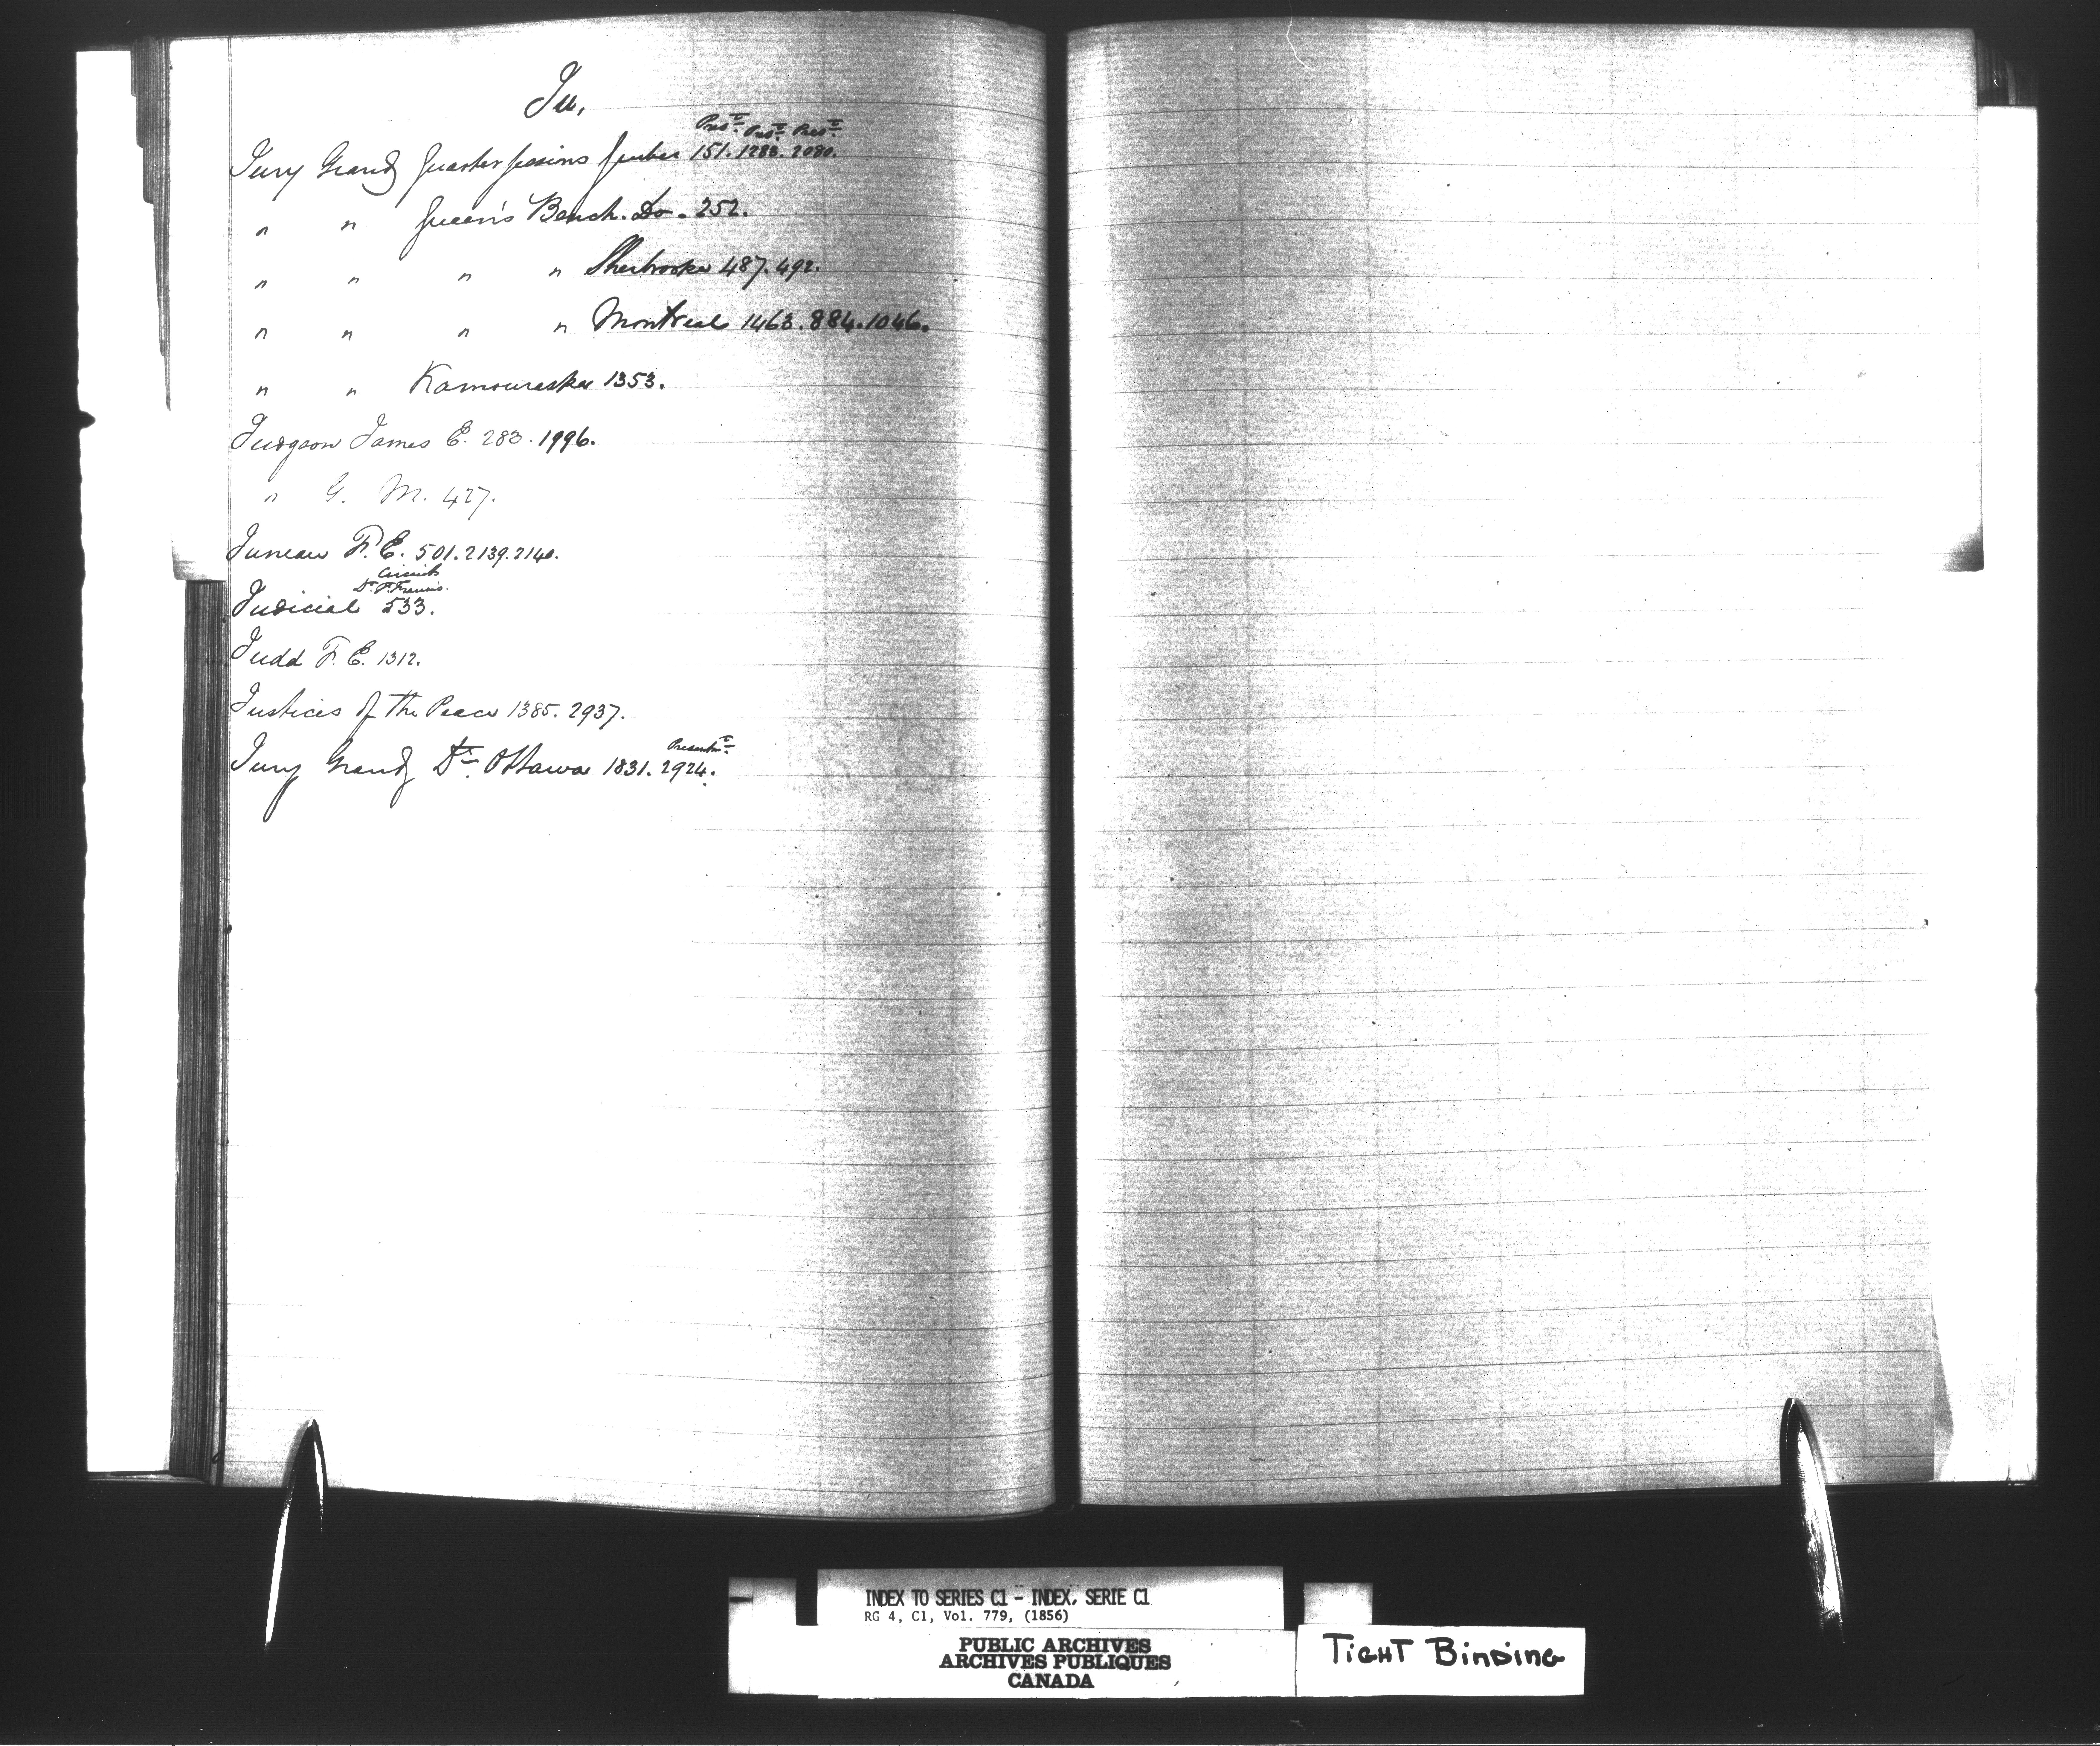 Ju,
Presᵗ. Presᵗ. Presᵗ.
Jury Grand Quarter Sessions Quebec 151. 1283. 2080.
" " Queen's Bench. Do. 252.
" " " " Sherbrooke 487. 492.
" " " " Montreal 1463. 884. 1046.
" " Kamouraska 1353.
Judgson James E. 283. 1996.
" G. M. 427.
Juneau F. E. 501. 2139. 2140.
Circuit
Dᵗ. Sᵗ. Francis.
Judicial 533.
Judd F. E. 1312.
Justices of the Peace 1385. 2937.
Presentmᵗ.
Jury Grand Dᵗ. Ottawa 1831. 2924.
INDEX TO SERIES C1 - INDEX, SERIE C1
RG 4, C1, Vol. 779, (1856)
PUBLIC ARCHIVES
ARCHIVES PUBLIQUES
CANADA
TIGHT BINDING